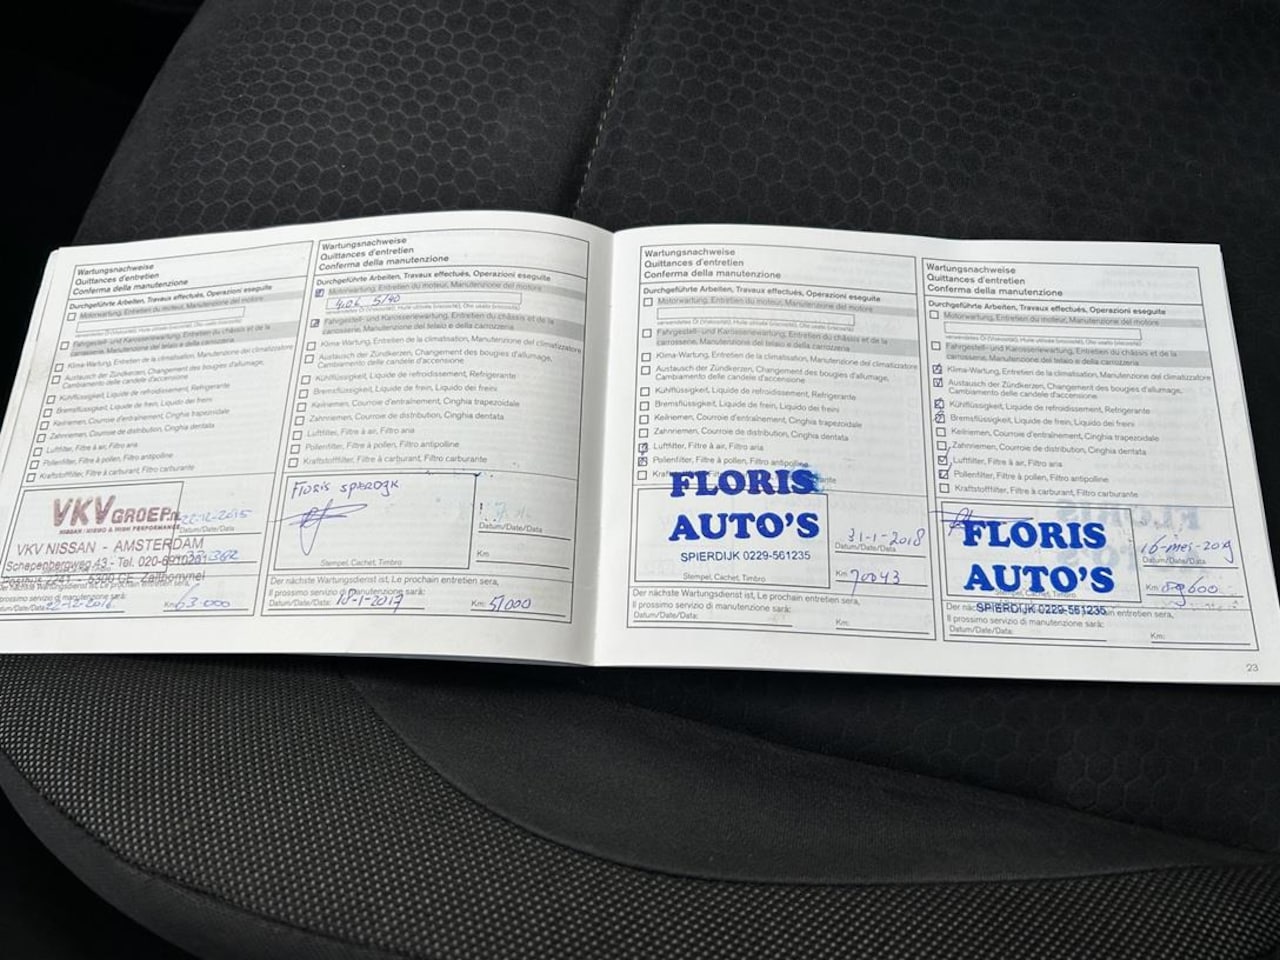 Wartungsnachweise
Quittances d'entretien
Conferma della manutenzione
Durchgeführte Arbeiten, Travaux effectués, Operazioni eseguite
Motorwartung, Entretien du moteur, Manutenzione del motore
verwendetes Öl (Viskosität), Huile utilisée (viscosité), Olio usato (viscosità)
Fahrgestell- und Karosseriewartung, Entretien du châssis et de la
carrosserie, Manutenzione del telaio e della carrozzeria
Klima-Wartung, Entretien de la climatisation, Manutenzione del climatizzatore
Austausch der Zündkerzen, Changement des bougies d'allumage,
Cambiamento delle candele d'accensione
Kühlflüssigkeit, Liquide de refroidissement, Refrigerante
Bremsflüssigkeit, Liquide de frein, Liquido dei freni
Keilriemen, Courroie d'entraînement, Cinghia trapezoidale
Zahnriemen, Courroie de distribution, Cinghia dentata
Luftfilter, Filtre à air, Filtro aria
Pollenfilter, Filtre à pollen, Filtro antipolline
Kraftstofffilter, Filtre à carburant, Filtro carburante
VKV GROEP.nl
NISSAN / NISMO & HIGH PERFORMANCE
VKV NISSAN - AMSTERDAM
Schepenbergweg 43 - Tel. 020-6910201
22-12-2015
Datum/Date/Data
Der nächste Wartungsdienst ist, Le prochain entretien sera,
Il prossimo servizio di manutenzione sarà:
Datum/Date/Data: 22-12-2016 Km: 63000
Wartungsnachweise
Quittances d'entretien
Conferma della manutenzione
Durchgeführte Arbeiten, Travaux effectués, Operazioni eseguite
Motorwartung, Entretien du moteur, Manutenzione del motore
5/40
verwendetes Öl (Viskosität), Huile utilisée (viscosité), Olio usato (viscosità)
Fahrgestell- und Karosseriewartung, Entretien du châssis et de la
carrosserie, Manutenzione del telaio e della carrozzeria
Klima-Wartung, Entretien de la climatisation, Manutenzione del climatizzatore
Austausch der Zündkerzen, Changement des bougies d'allumage,
Cambiamento delle candele d'accensione
Kühlflüssigkeit, Liquide de refroidissement, Refrigerante
Bremsflüssigkeit, Liquide de frein, Liquido dei freni
Keilriemen, Courroie d'entraînement, Cinghia trapezoidale
Zahnriemen, Courroie de distribution, Cinghia dentata
Luftfilter, Filtre à air, Filtro aria
Pollenfilter, Filtre à pollen, Filtro antipolline
Kraftstofffilter, Filtre à carburant, Filtro carburante
Floris Spierdijk
Datum/Date/Data
Km
Stempel, Cachet, Timbro
Der nächste Wartungsdienst ist, Le prochain entretien sera,
Il prossimo servizio di manutenzione sarà:
Datum/Date/Data: 10-1-2017 Km: 51000
Wartungsnachweise
Quittances d'entretien
Conferma della manutenzione
Durchgeführte Arbeiten, Travaux effectués, Operazioni eseguite
Motorwartung, Entretien du moteur, Manutenzione del motore
verwendetes Öl (Viskosität), Huile utilisée (viscosité), Olio usato (viscosità)
Fahrgestell- und Karosseriewartung, Entretien du châssis et de la
carrosserie, Manutenzione del telaio e della carrozzeria
Klima-Wartung, Entretien de la climatisation, Manutenzione del climatizzatore
Austausch der Zündkerzen, Changement des bougies d'allumage,
Cambiamento delle candele d'accensione
Kühlflüssigkeit, Liquide de refroidissement, Refrigerante
Bremsflüssigkeit, Liquide de frein, Liquido dei freni
Keilriemen, Courroie d'entraînement, Cinghia trapezoidale
Zahnriemen, Courroie de distribution, Cinghia dentata
Luftfilter, Filtre à air, Filtro aria
Pollenfilter, Filtre à pollen, Filtro antipolline
FLORIS
AUTO'S
SPIERDIJK 0229-561235
31-1-2018
Datum/Date/Data
Km 70043
Stempel, Cachet, Timbro
Der nächste Wartungsdienst ist, Le prochain entretien sera,
Il prossimo servizio di manutenzione sarà:
Datum/Date/Data: Km:
Wartungsnachweise
Quittances d'entretien
Conferma della manutenzione
Durchgeführte Arbeiten, Travaux effectués, Operazioni eseguite
Motorwartung, Entretien du moteur, Manutenzione del motore
verwendetes Öl (Viskosität), Huile utilisée (viscosité), Olio usato (viscosità)
Fahrgestell- und Karosseriewartung, Entretien du châssis et de la
carrosserie, Manutenzione del telaio e della carrozzeria
Klima-Wartung, Entretien de la climatisation, Manutenzione del climatizzatore
Austausch der Zündkerzen, Changement des bougies d'allumage,
Cambiamento delle candele d'accensione
Kühlflüssigkeit, Liquide de refroidissement, Refrigerante
Bremsflüssigkeit, Liquide de frein, Liquido dei freni
Keilriemen, Courroie d'entraînement, Cinghia trapezoidale
Zahnriemen, Courroie de distribution, Cinghia dentata
Luftfilter, Filtre à air, Filtro aria
Pollenfilter, Filtre à pollen, Filtro antipolline
Kraftstofffilter, Filtre à carburant, Filtro carburante
FLORIS
AUTO'S
SPIERDIJK 0229-561235
16-mei-2019
Datum/Date/Data
Km 89600
Stempel, Cachet, Timbro
Il prossimo servizio di manutenzione sarà:
Datum/Date/Data: Km:
23